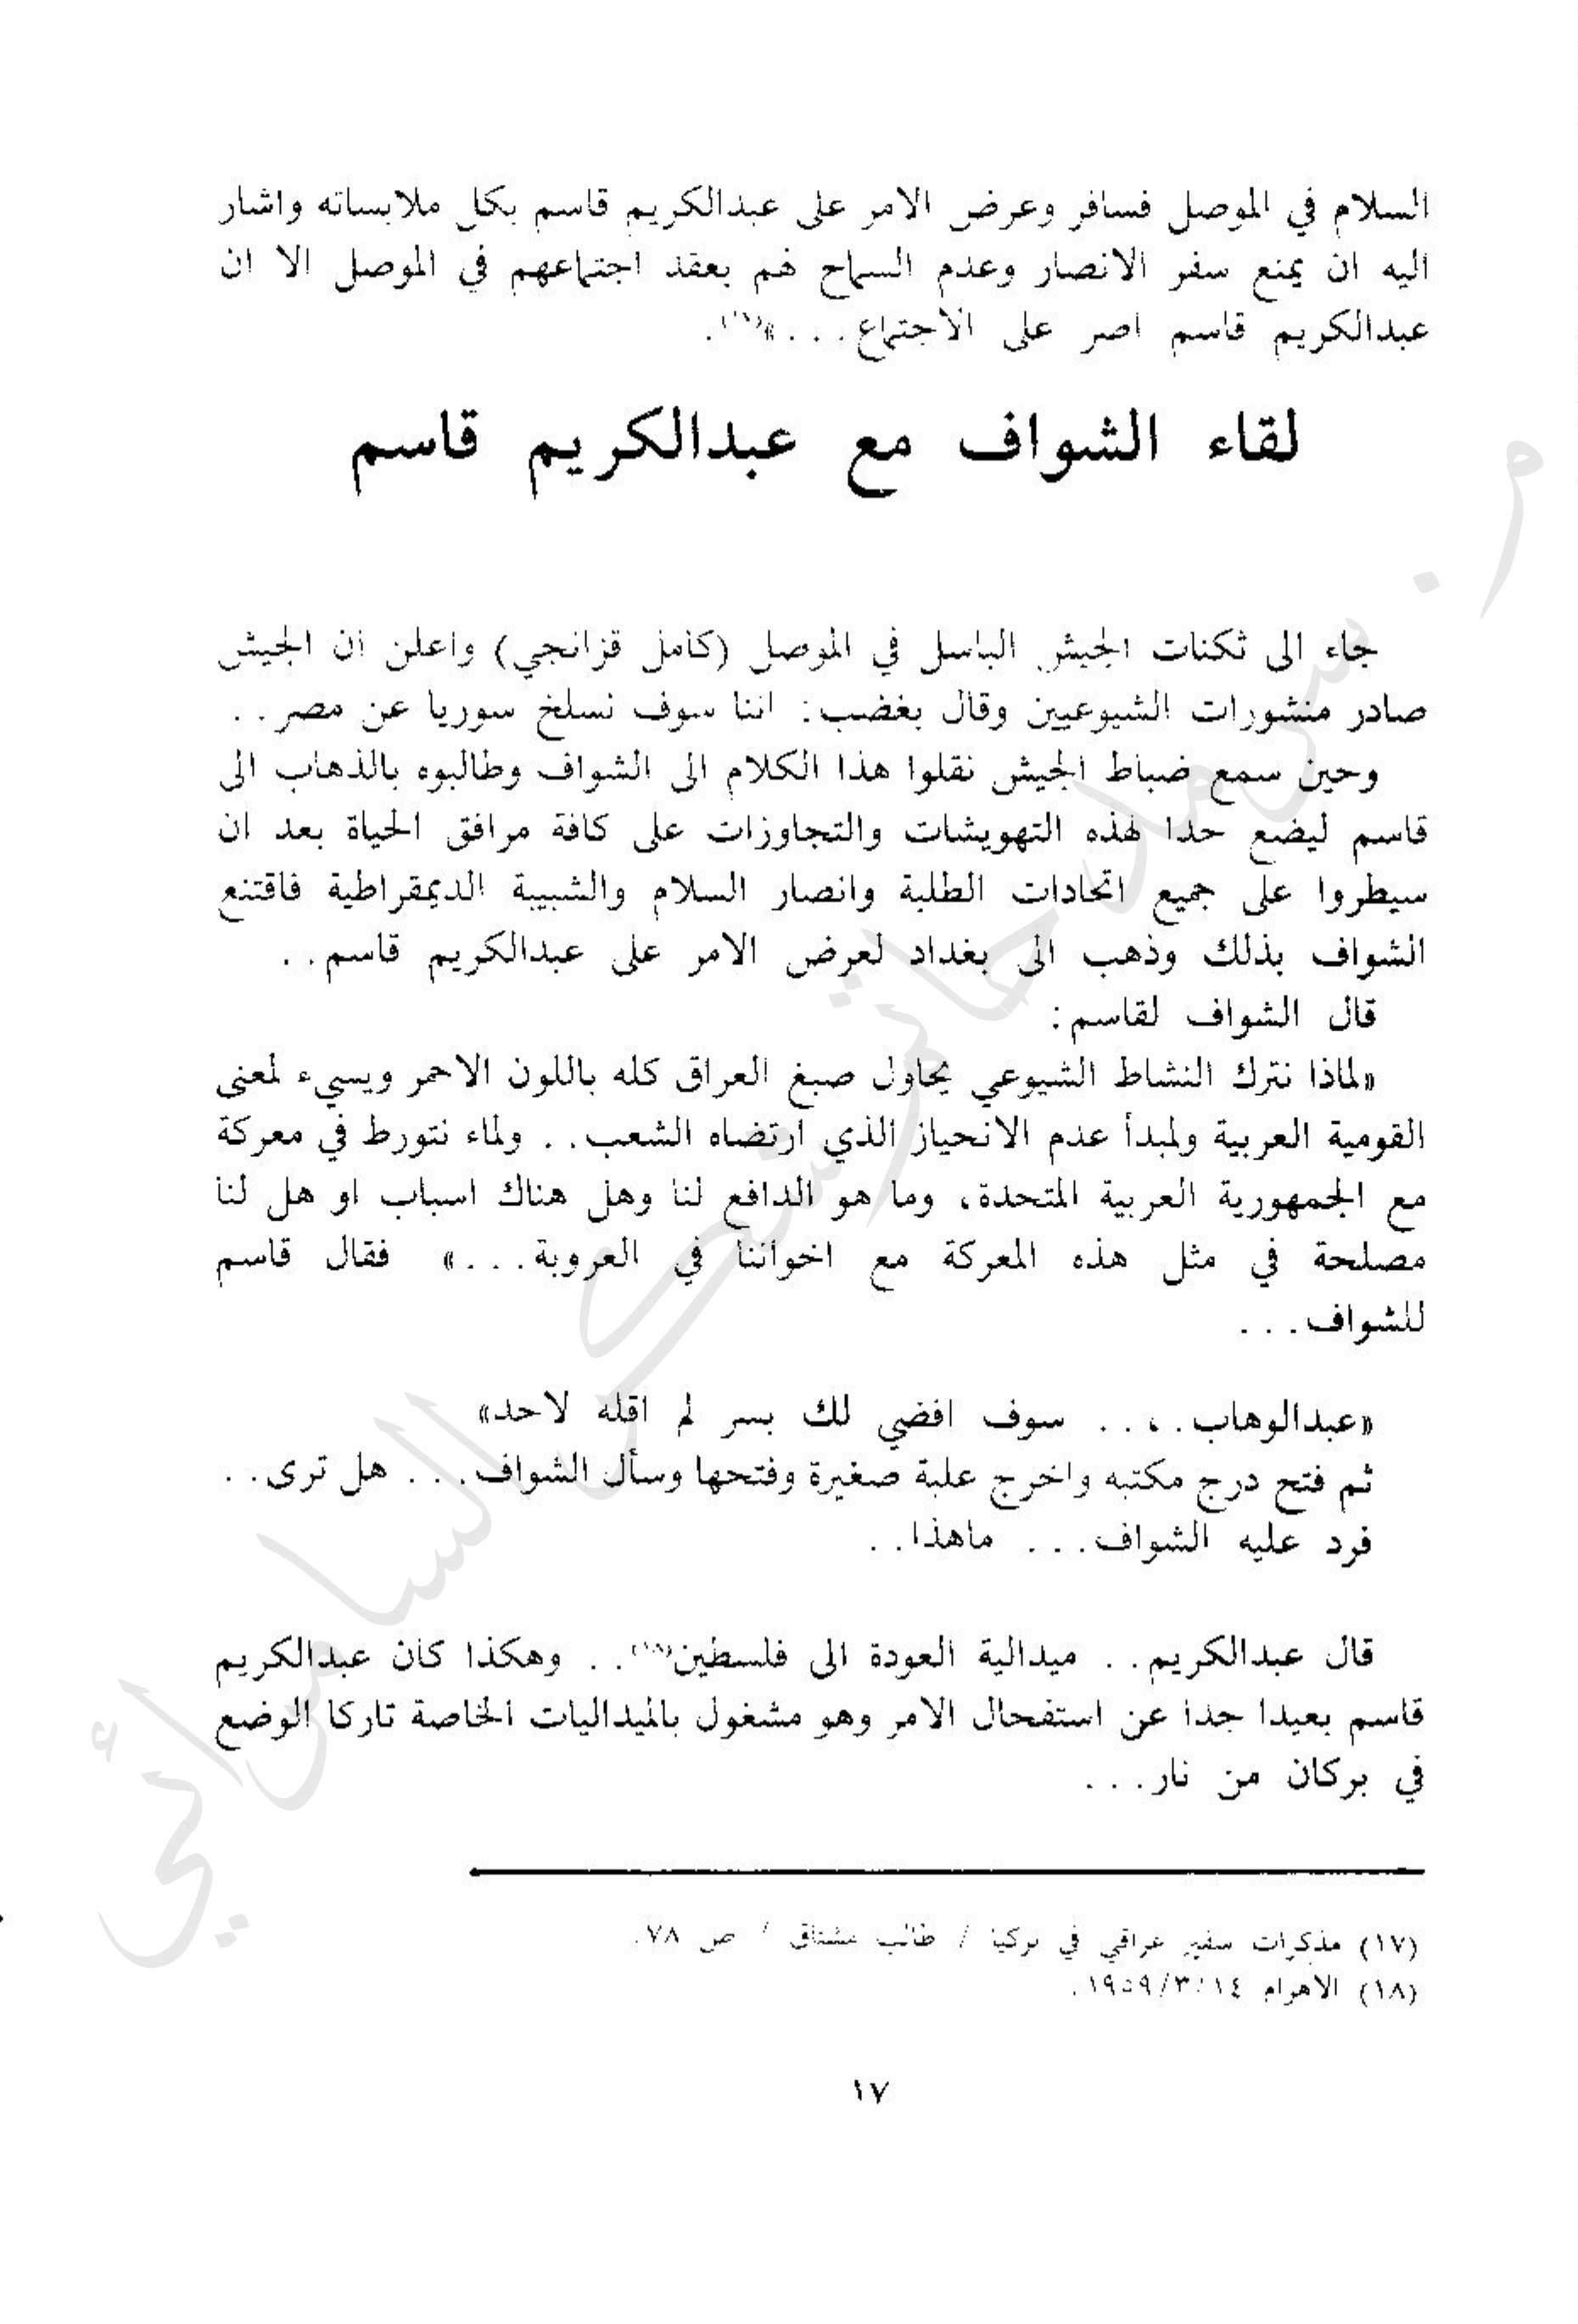 السلام في الموصل فسافر وعرض الامر على عبدالكريم قاسم بكل ملابساته واشار
اليه ان يمنع سفر الانصار وعدم السماح لهم بعقد اجتماعهم في الموصل الا ان
عبدالكريم قاسم اصر على الاجتماع...»(١٧).
لقاء الشواف مع عبدالكريم قاسم
جاء الى ثكنات الجيش الباسل في الموصل (كامل قزانجي) واعلن ان الجيش
صادر منشورات الشيوعيين وقال بغضب: اننا سوف نسلخ سوريا عن مصر..
وحين سمع ضباط الجيش نقلوا هذا الكلام الى الشواف وطالبوه بالذهاب الى
قاسم ليضع حدا لهذه التهويشات والتجاوزات على كافة مرافق الحياة بعد ان
سيطروا على جميع اتحادات الطلبة وانصار السلام والشبيبة الديمقراطية فاقتنع
الشواف بذلك وذهب الى بغداد لعرض الامر على عبدالكريم قاسم..
قال الشواف لقاسم:
«لماذا نترك النشاط الشيوعي يحاول صبغ العراق كله باللون الاحمر ويسيء لمعنى
القومية العربية ولمبدأ عدم الانحياز الذي ارتضاه الشعب.. ولماء نتورط في معركة
مع الجمهورية العربية المتحدة، وما هو الدافع لنا وهل هناك اسباب او هل لنا
مصلحة في مثل هذه المعركة مع اخواننا في العروبة...» فقال قاسم
للشواف...
«عبدالوهاب.،.. سوف افضي لك بسر لم اقله لاحد»
ثم فتح درج مكتبه واخرج علبة صغيرة وفتحها وسأل الشواف... هل ترى..
فرد عليه الشواف... ماهذا..
قال عبدالكريم.. ميدالية العودة الى فلسطين(١٨).. وهكذا كان عبدالكريم
قاسم بعيدا جدا عن استفحال الامر وهو مشغول بالميداليات الخاصة تاركا الوضع
في بركان من نار...
(١٧) مذكرات سفير عراقي في تركيا / طالب مشتاق / ص ٧٨.
(١٨) الاهرام ١٩٥٩/٣/١٤.
١٧